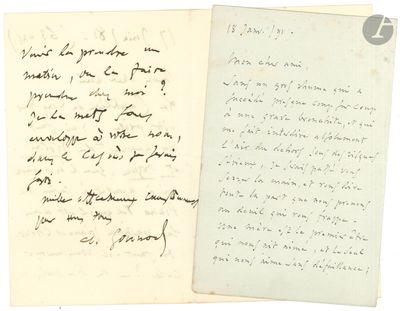 venir la prendre un
matin, ou la faire
prendre chez moi?
je la mets sous
enveloppe à votre nom,
dans le cas où je serais
sorti.
mille affectueux
pour vous tous
Ch. Gounod
18 Janv./91.
Mon cher ami,
Sans un gros rhume qui a
succédé presque coup sur coup
à une grave bronchite, et qui
me fait interdire absolument
l'air du dehors sous des risques
sérieux, je serais allé vous
serrer la main, et vous dire
toute la part que nous prenons
au deuil qui vous frappe.
Une mère est le premier être
qui nous ait aimé, et le seul
qui nous aime sans défaillance;